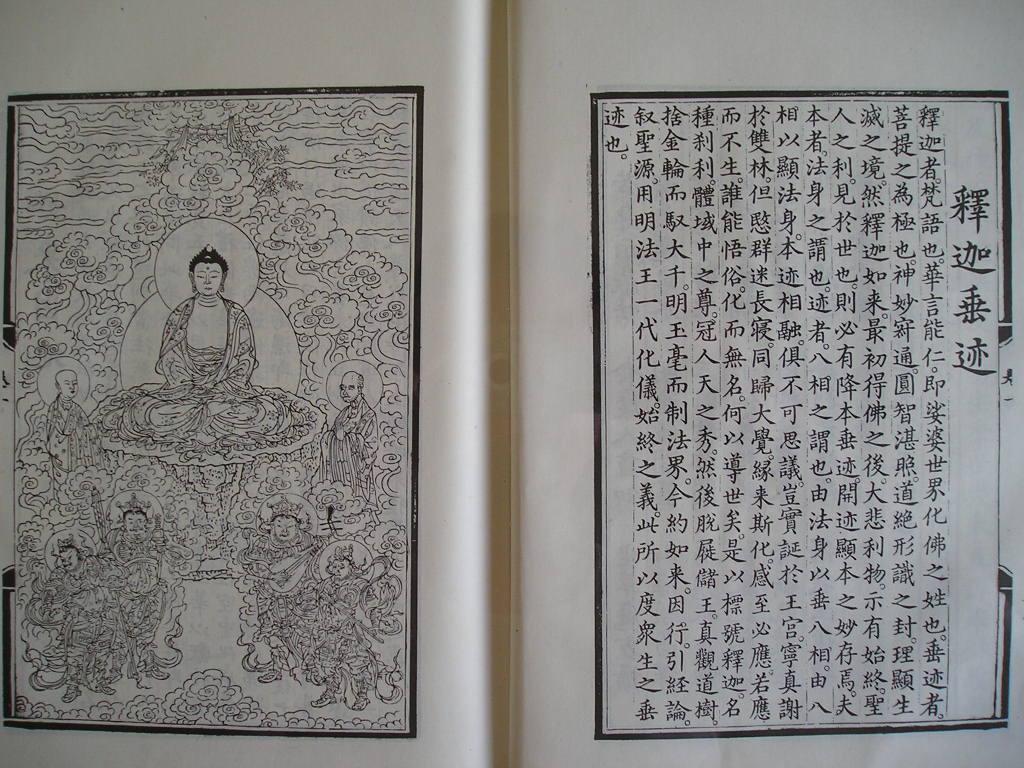 釋迦垂迹
釋迦者梵語也。華言能仁。即娑婆世界化佛之姓也。垂迹者。
菩提之為極也。神妙㝛通。圓智湛照。道絕形識之封。理顯生
滅之境。然釋迦如来。最初得佛之後。大悲利物。示有始終。聖
人之利見於世也。則必有降本垂迹。開迹顯本之妙存焉。夫
本者。法身之謂也。迹者。八相之謂也。由法身以垂八相。由八
相以顯法身。本迹相融。俱不可思議。豈實誕於王宮。寧真謝
於雙林。但愍群迷長寢。同歸大覺。緣来斯化。感至必應。若應
而不生。誰能悟俗。化而無名。何以導世矣。是以標號釋迦。名
種刹利。體域中之尊。冠人天之秀。然後脫屣儲王。真觀道樹。
捨金輪而馭大千。明玉毫而制法界。今約如来。因行。引経論。
叙聖源。用明法王一代化儀。始終之義。此所以度衆生之垂
迹也。
卷一